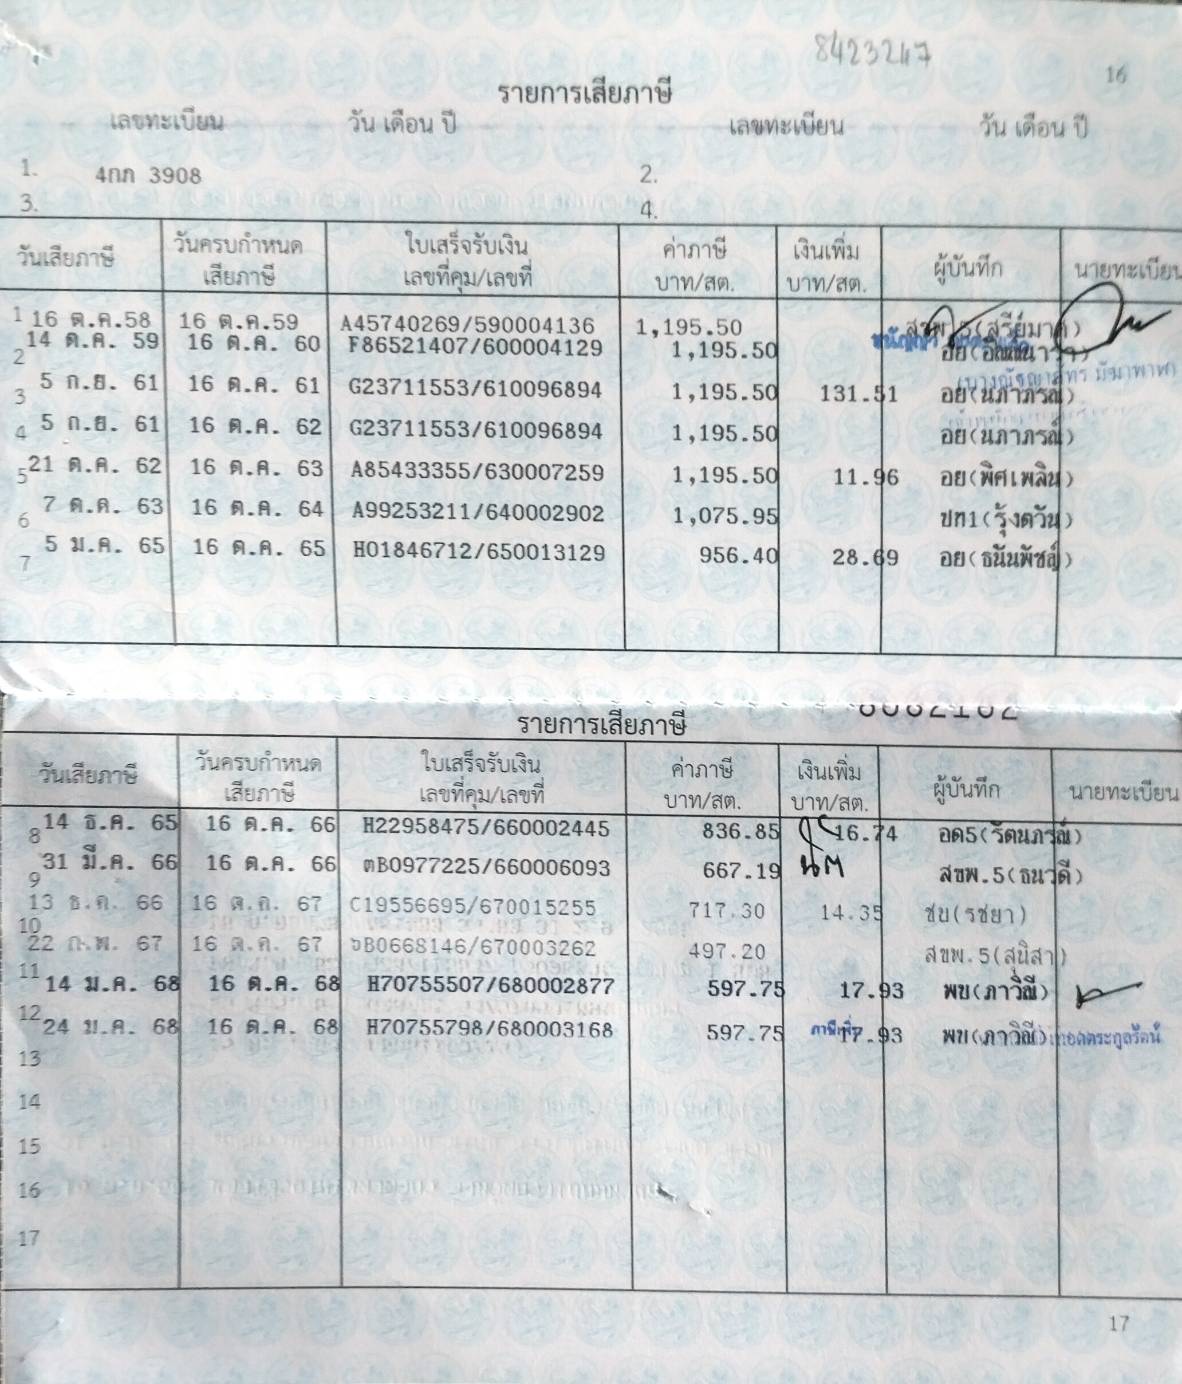 8423247
16
รายการเสียภาษี
เลขทะเบียน วัน เดือน ปี เลขทะเบียน วัน เดือน ปี
1. 4กภ 3908 2.
3. 4.
วันเสียภาษี วันครบกำหนดเสียภาษี ใบเสร็จรับเงิน เลขที่คุม/เลขที่ ค่าภาษี บาท/สต. เงินเพิ่ม บาท/สต. ผู้บันทึก นายทะเบียน
1 16 ต.ค.58 16 ต.ค.59 A45740269/590004136 1,195.50
2 14 ต.ค. 59 16 ต.ค. 60 F86521407/600004129 1,195.50
3 5 ก.ย. 61 16 ต.ค. 61 G23711553/610096894 1,195.50 131.51 อย(นภาภรณ์)
4 5 ก.ย. 61 16 ต.ค. 62 G23711553/610096894 1,195.50 อย(นภาภรณ์)
5 21 ต.ค. 62 16 ต.ค. 63 A85433355/630007259 1,195.50 11.96 อย(พิศเพลิน)
6 7 ต.ค. 63 16 ต.ค. 64 A99253211/640002902 1,075.95 ปท1(รุ้งตวัน)
7 5 ม.ค. 65 16 ต.ค. 65 H01846712/650013129 956.40 28.69 อย(ธนันพัชล์)
รายการเสียภาษี
วันเสียภาษี วันครบกำหนดเสียภาษี ใบเสร็จรับเงิน เลขที่คุม/เลขที่ ค่าภาษี บาท/สต. เงินเพิ่ม บาท/สต. ผู้บันทึก นายทะเบียน
8 14 ธ.ค. 65 16 ต.ค. 66 H22958475/660002445 836.85 16.74 อด5(รัตนภรณ์)
9 31 มี.ค. 66 16 ต.ค. 66 ตB0977225/660006093 667.19 สขพ.5(ธนวดี)
10 13 ธ.ค. 66 16 ต.ค. 67 C19556695/670015255 717.30 14.35 ชบ(รชยา)
11 22 ก.พ. 67 16 ต.ค. 67 B0668146/670003262 497.20 สขพ.5(สุนิสา)
12 14 ม.ค. 68 16 ต.ค. 68 H70755507/680002877 597.75 17.93 พข(ภาวิณี)
24 ม.ค. 68 16 ต.ค. 68 H70755798/680003168 597.75 17.93 พข(ภาวิณี)
13
14
15
16
17
17